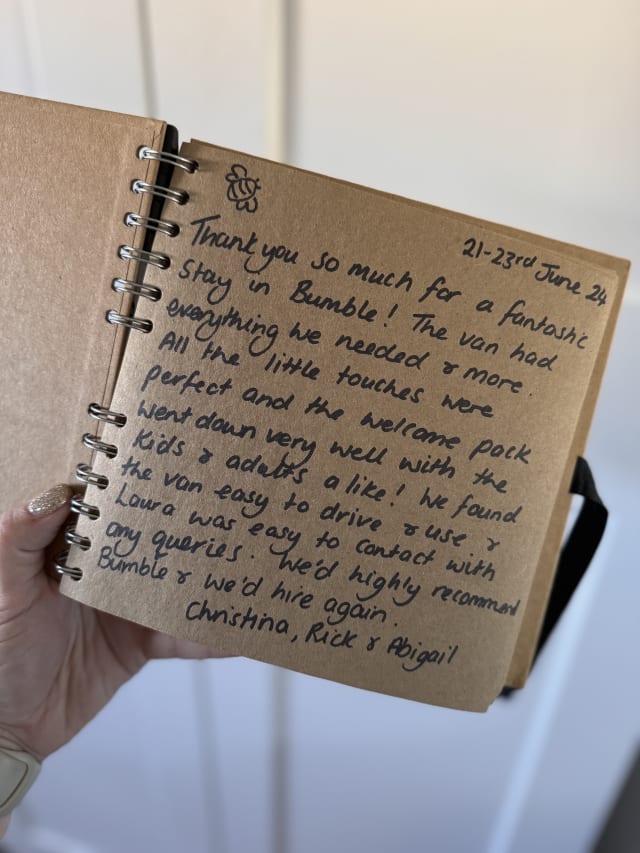 21-23rd June 24
Thank you so much for a fantastic
stay in Bumble! The van had
everything we needed & more.
All the little touches were
perfect and the welcome pack
went down very well with the
kids & adults alike! We found
the van easy to drive & use &
Laura was easy to contact with
any queries. We'd highly recommend
Bumble & we'd hire again.
Christina, Rick & Abigail